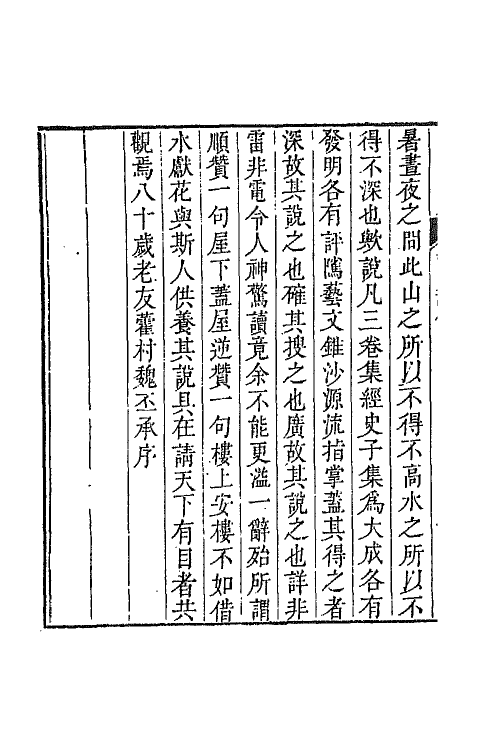 暑晝夜之間此山之所以不得不高水之所以不
得不深也歟說凡三卷集經史子集爲大成各有
發明各有評隲藝文錐沙源流指掌蓋其得之者
深故其說之也確其搜之也廣故其說之也詳非
雷非電令人神驚讀竟余不能更溢一辭殆所謂
順贊一句屋下蓋屋逆贊一句樓上安樓不如借
水獻花與斯人供養其說具在請天下有目者共
觀焉八十歲老友藋村魏丕承序